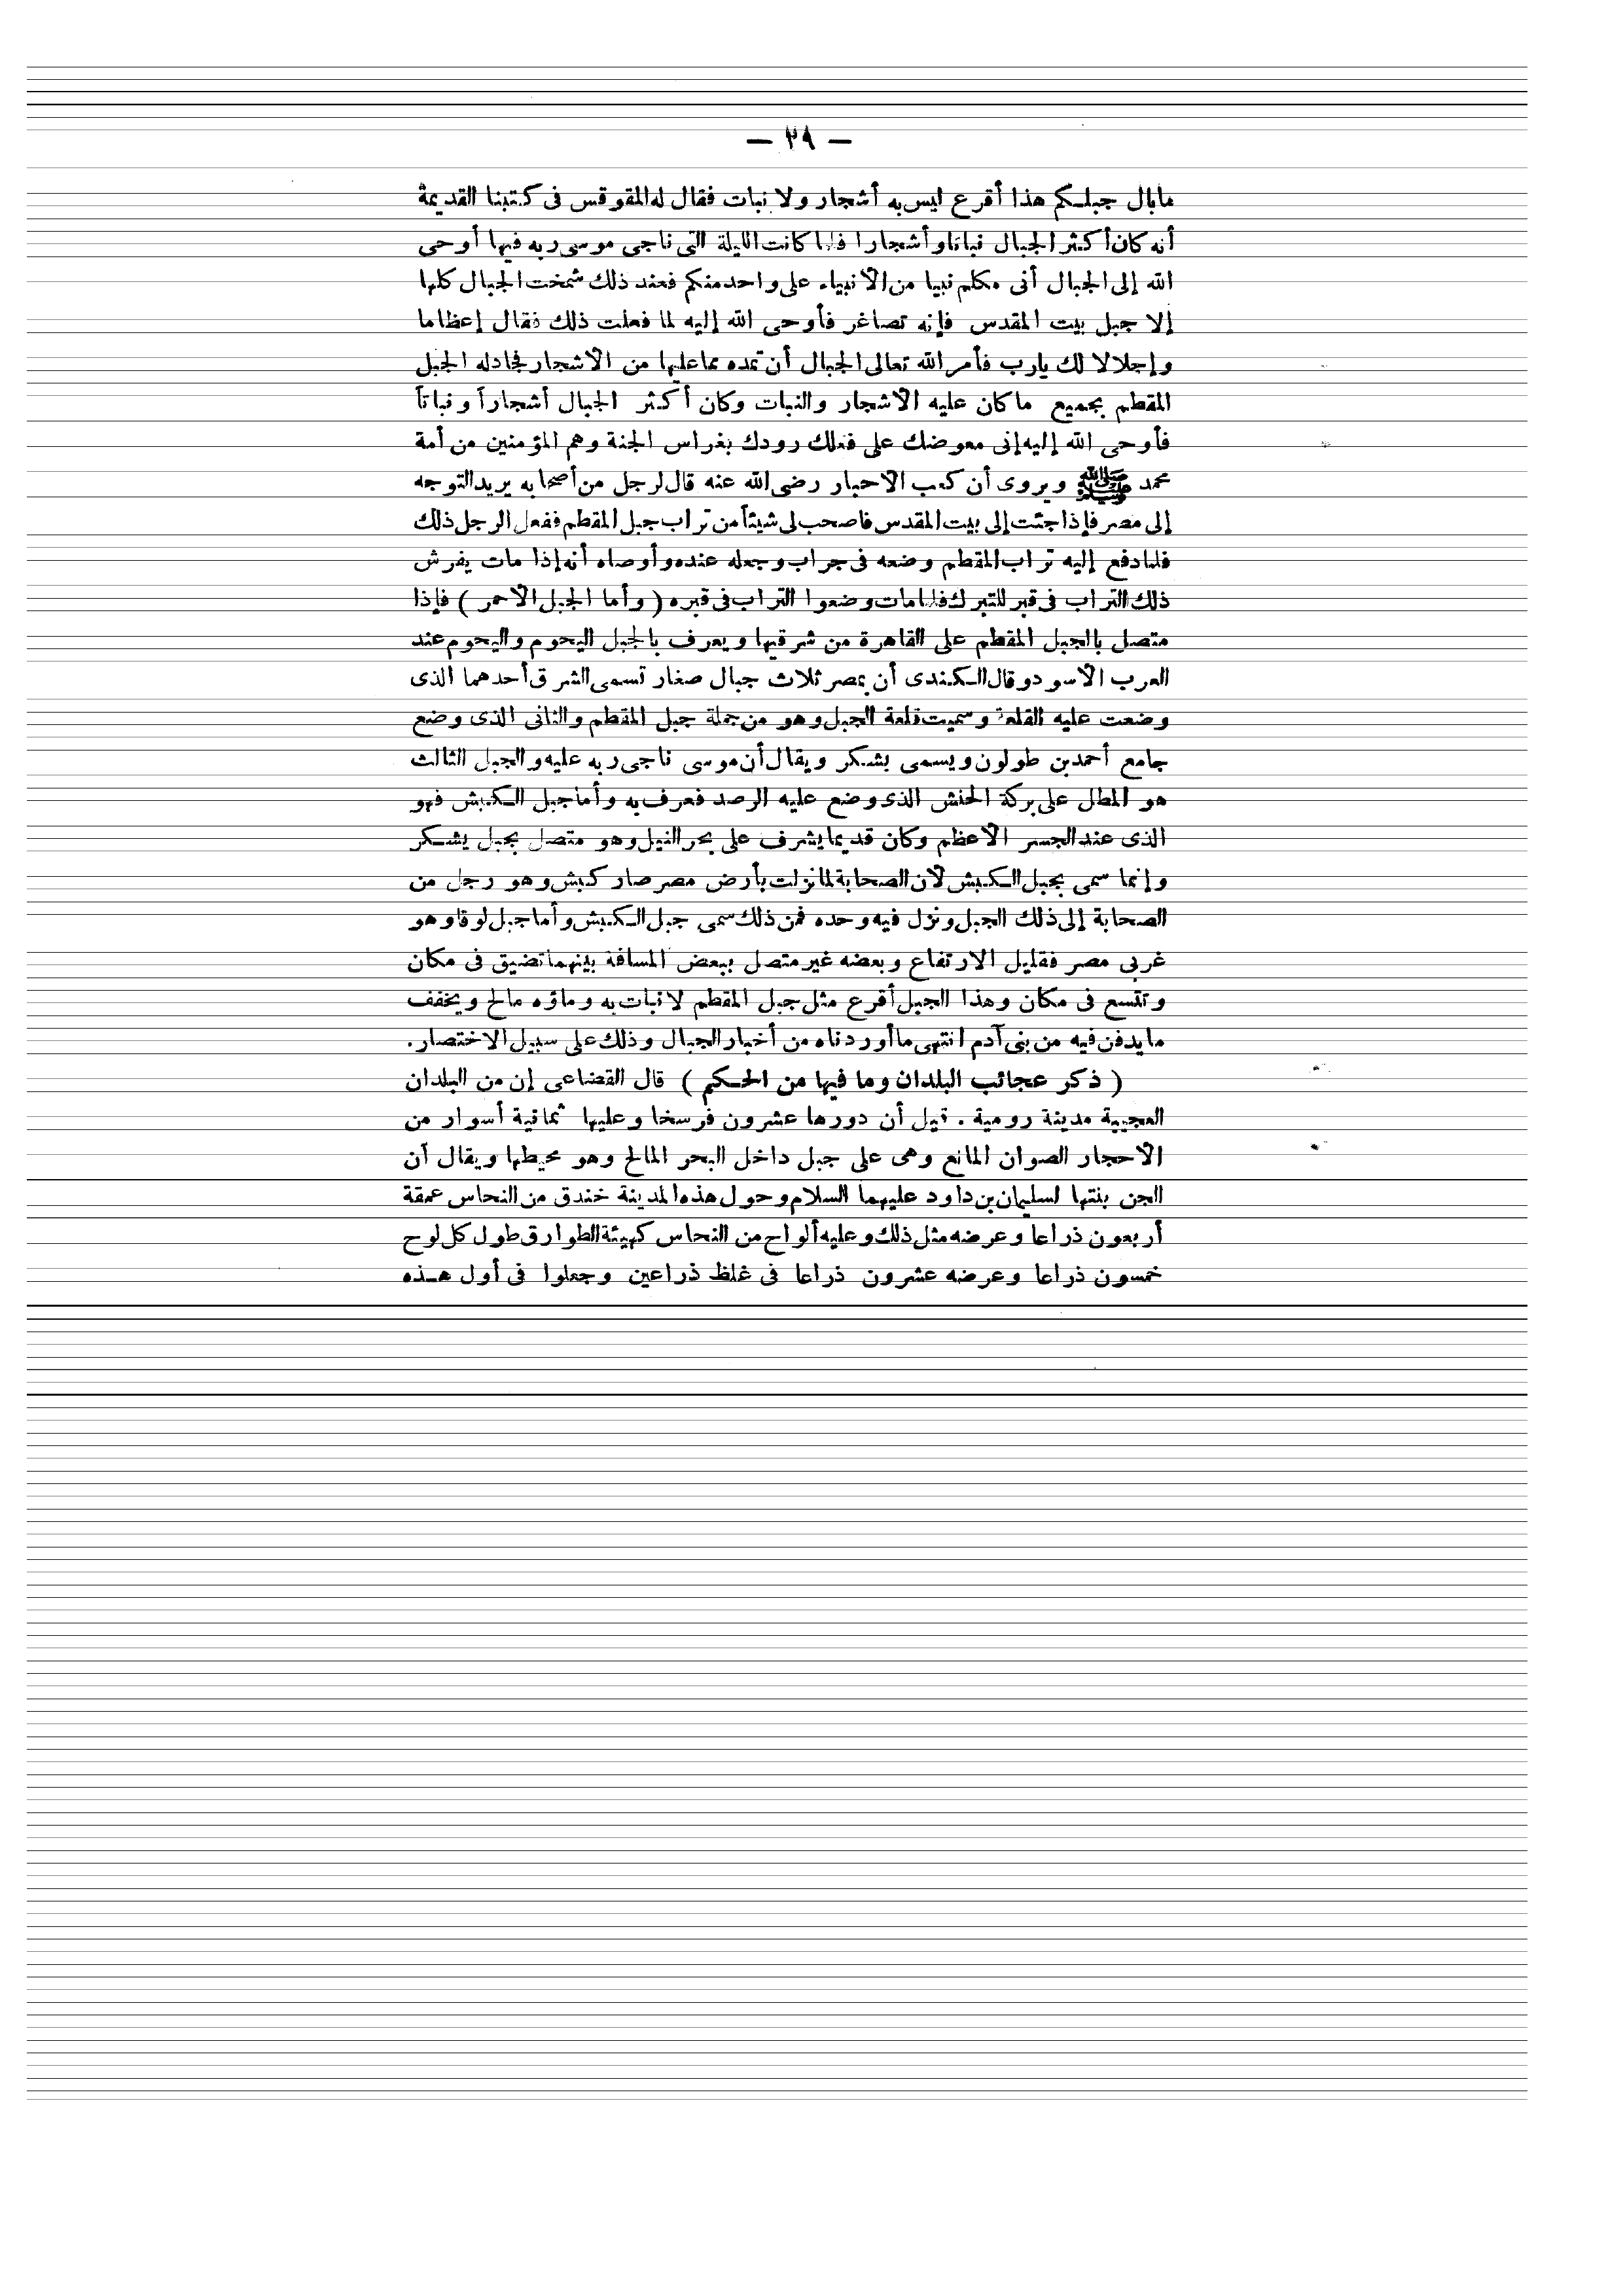 — ٢٩ —
مابال جبلكم هذا أقرع ليس به أشجار ولا نبات فقال له المقوقس فى كتبنا القديمة
أنه كان أكثر الجبال نباتا وأشجارا فلما كانت الليلة التى ناجى موسى ربه فيها أوحى
الله إلى الجبال أنى مكلم نبيا من الأنبياء على واحد منكم فعند ذلك شمخت الجبال كلها
إلا جبل بيت المقدس فإنه تصاغر فأوحى الله إليه لما فعلت ذلك فقال إعظاما
وإجلالا لك يارب فأمر الله تعالى الجبال أن تمده مما عليها من الأشجار فجادله الجبل
المقطم بجميع ما كان عليه الأشجار والنبات وكان أكثر الجبال أشجاراً ونباتاً
فأوحى الله إليه إنى معوضك على فعلك رودك بغراس الجنة وهم المؤمنين من أمة
محمد ﷺ ويروى أن كعب الأحبار رضى الله عنه قال لرجل من أصحابه يريد التوجه
إلى مصر فإذا جئت إلى بيت المقدس فاصحب لى شيئاً من تراب جبل المقطم ففعل الرجل ذلك
فلما دفع إليه تراب المقطم وضعه فى جراب وجعله عنده وأوصاه أنه إذا مات يفرش
ذلك التراب فى قبر للتبرك فلما مات وضعوا التراب فى قبره ( وأما الجبل الأحمر ) فإذا
متصل بالجبل المقطم على القاهرة من شرقيها ويعرف بالجبل اليحوم واليحوم عند
العرب الأسود وقال الكندى أن بمصر ثلاث جبال صغار تسمى الشرق أحدهما الذى
وضعت عليه القلعة وسميت قلعة الجبل وهو من جملة جبل المقطم والثانى الذى وضع
جامع أحمد بن طولون ويسمى بشكر ويقال أن موسى ناجى ربه عليه والجبل الثالث
هو المطل على بركة الحنش الذى وضع عليه الرصد فعرف به وأما جبل الكبش فهو
الذى عند الجسر الأعظم وكان قديما يشرف على بحر النيل وهو متصل بجبل يشكر
وإنما سمى بجبل الكبش لأن الصحابة لما نزلت بأرض مصر صار كبش وهو رجل من
الصحابة إلى ذلك الجبل ونزل فيه وحده فمن ذلك سمى جبل الكبش وأما جبل لوقا وهو
غربى مصر فقليل الارتفاع وبعضه غير متصل ببعض المسافة بينهما تضيق فى مكان
وتتسع فى مكان وهذا الجبل أقرع مثل جبل المقطم لا نبات به وماؤه مالح ويخفف
ما يدفن فيه من بنى آدم انتهى ما أوردناه من أخبار الجبال وذلك على سبيل الاختصار.
( ذكر عجائب البلدان وما فيها من الحكم ) قال القضاعى إن من البلدان
العجيبة مدينة رومية . قيل أن دورها عشرون فرسخا وعليها ثمانية أسوار من
الأحجار الصوان المانع وهى على جبل داخل البحر المالح وهو محيطها ويقال أن
الجن بنتها لسليمان بن داود عليهما السلام وحول هذه المدينة خندق من النحاس عمقة
أربعون ذراعا وعرضه مثل ذلك وعليه ألواح من النحاس كهيئة الطوارق طول كل لوح
خمسون ذراعا وعرضه عشرون ذراعا فى غلظ ذراعين وجعلوا فى أول هذه